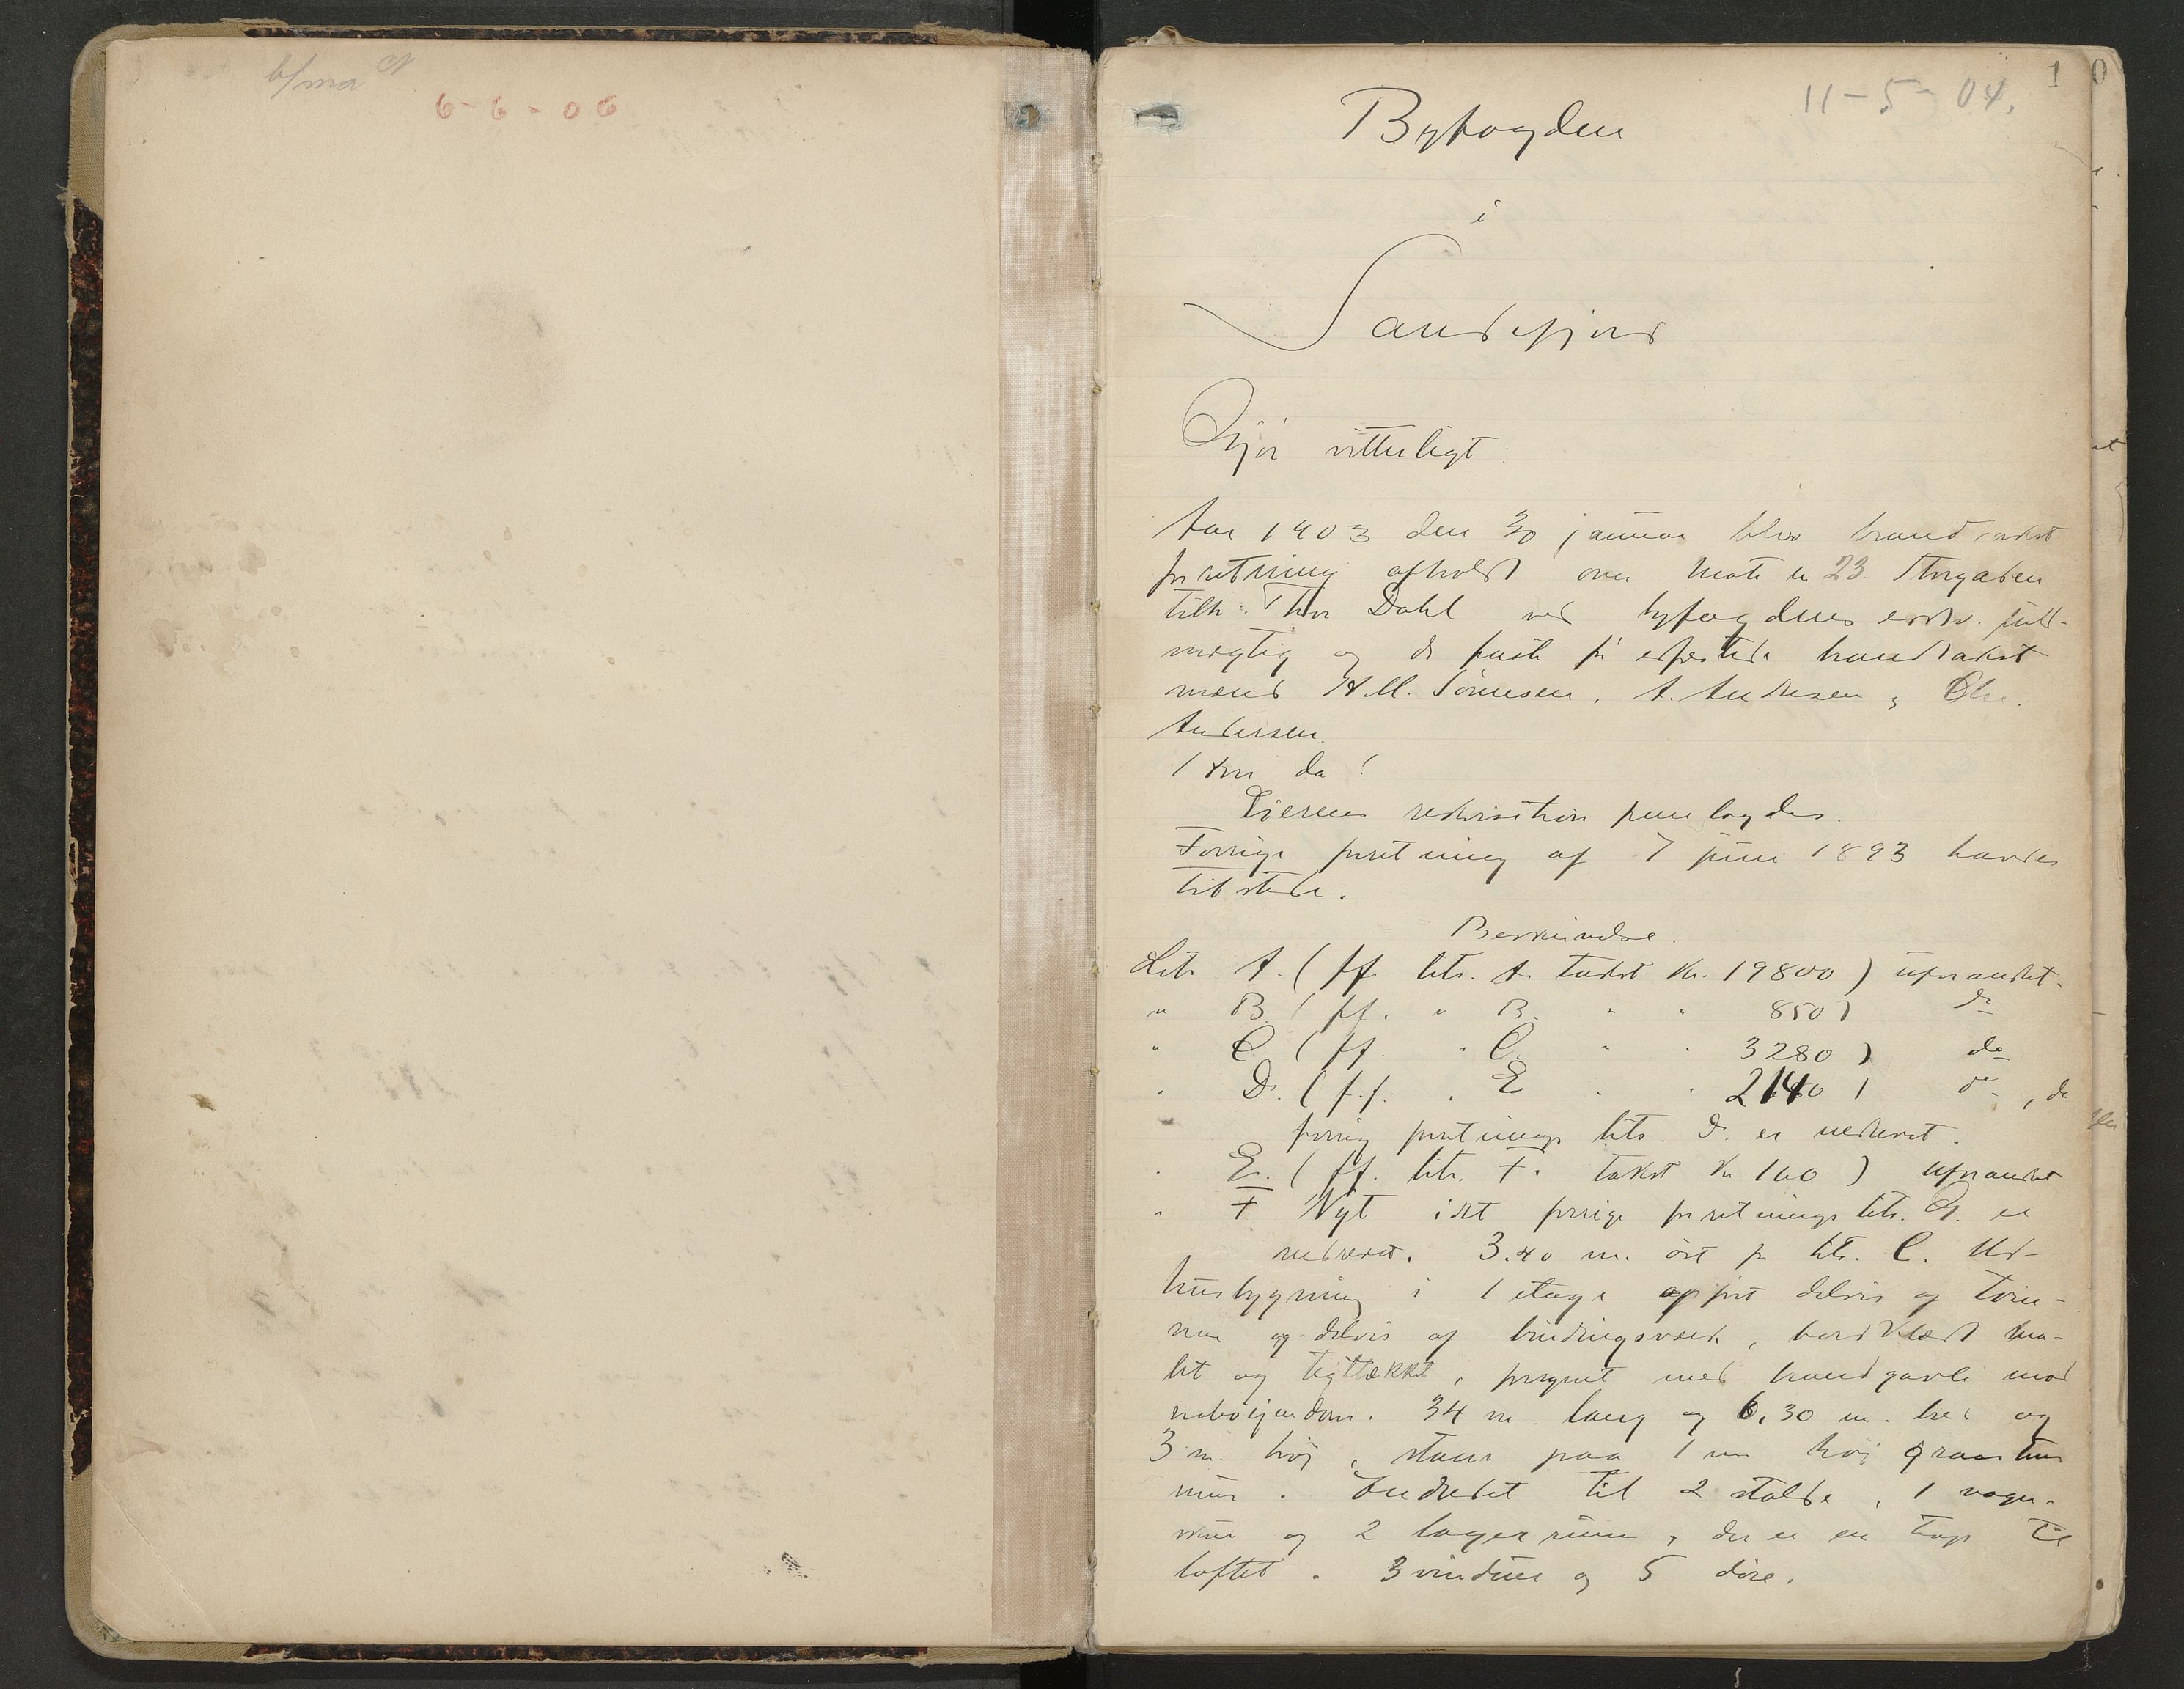 b/ma
6-6-06
11-5-04.
1
Byfogden
i
Sandefjord
Gjør vitterligt:
Aar 1903 den 30 januar blev brandtakst
forretning afholdt over Matr n 23 Storgaden
tilh. Thor Dahl ved byfogdens edsv. fuld-
mægtig og de faste for edfæstede brandtakst
mænd H.M. Sørensen, A. Andresen og Chr.
Andersen.
Hvor da!
Eierens rekvisition fremlagdes.
Forrige forretning af 7 juni 1893 havdes
tilstede.
Beskrivelse.
Litr A. (ff. litr. A. takst Kr. 19800) uforandret.
" B. (ff. " B. " " 850) do
" C. (ff. " C. " " 3280) do
" D. (f.f. " E " " 2140) do, da
forrig forretnings litr. D. er nedrevet.
" E. (ff. litr. F. takst Kr 160) uforandret
" F Nyt idet forrige forretnings litr. G. er
nedrevet. 3.40 m. øst for litr. C. Ud-
husbygning i 1 etage opført delvis af tøm-
mer og delvis af bindingsverk, bordklædt ma-
let og tegltækket, forsynet med brandgavle mod
naboeiendom. 34 m. lang og 6,30 m. bred og
3 m. høj, staar paa 1 m høj graastens
mur. Indredet til 2 stalde, 1 vogn-
skur og 2 lagerrum, der er en trap til
loftet. 3 vinduer og 5 døre.